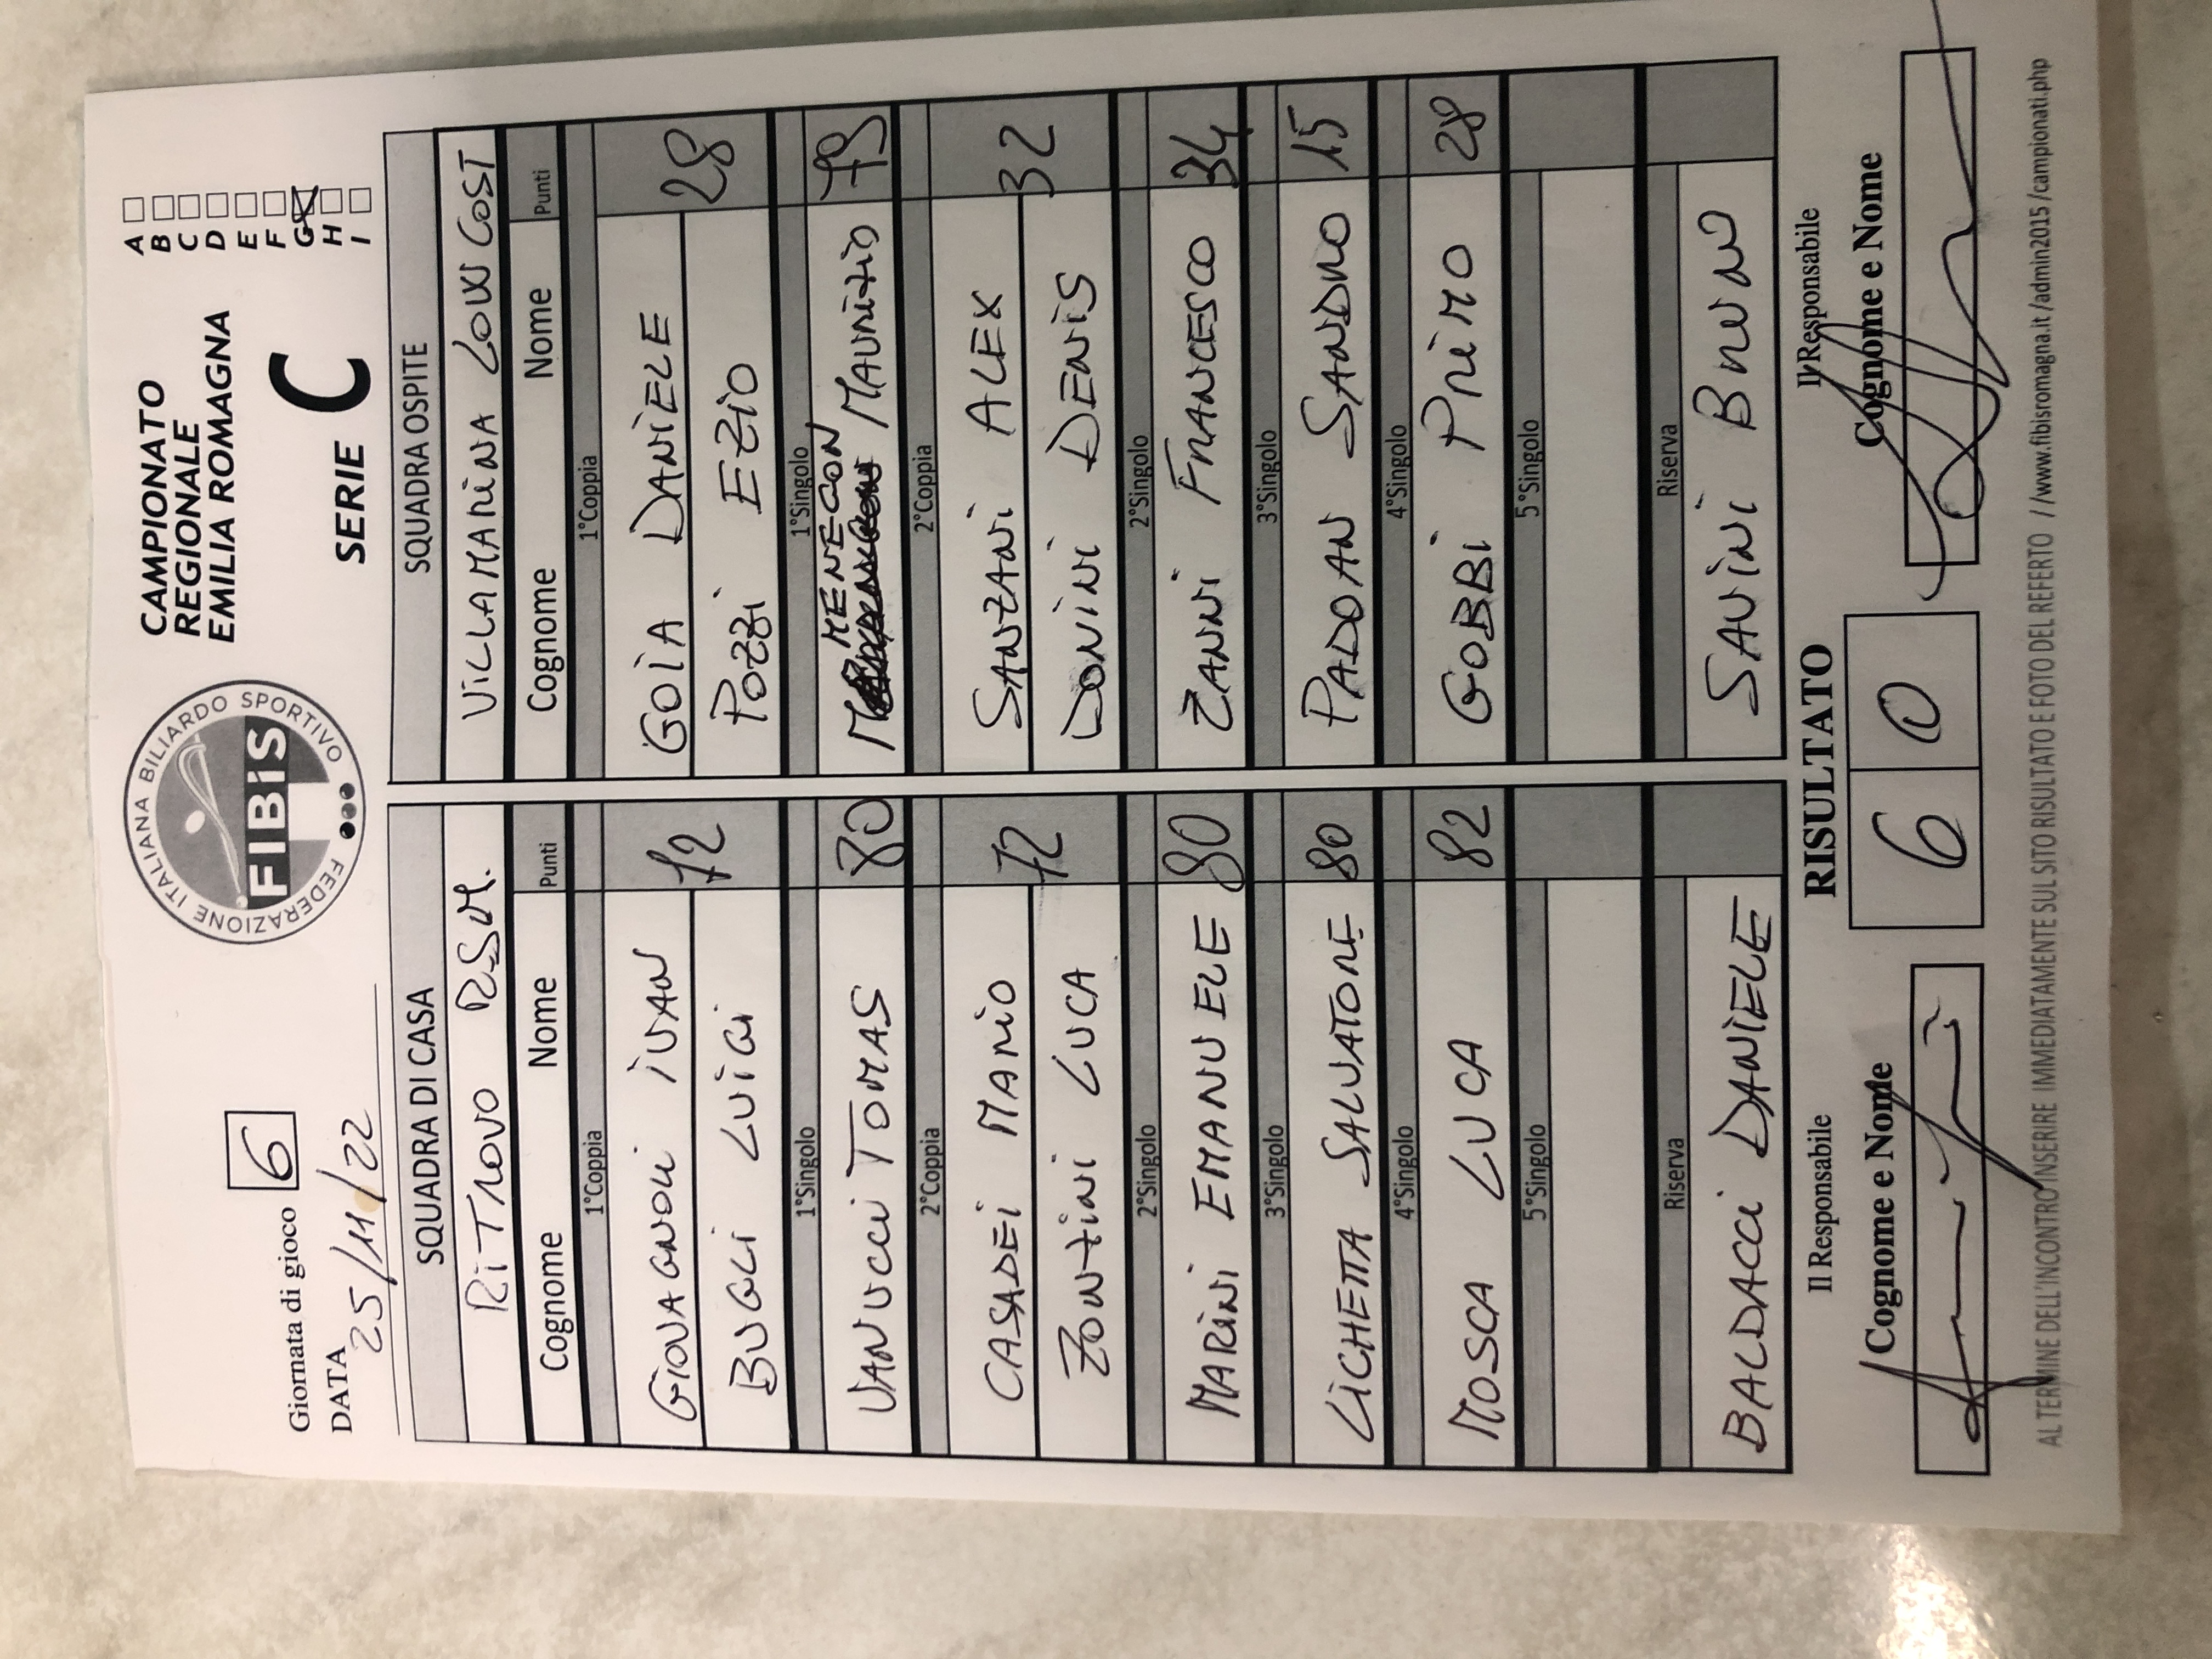 Giornata di gioco 6
DATA 25/11/22
FEDERAZIONE ITALIANA BILIARDO SPORTIVO
FIBiS
CAMPIONATO
REGIONALE
EMILIA ROMAGNA
SERIE C
A
B
C
D
E
F
G
H
I
SQUADRA DI CASA SQUADRA OSPITE
RiTROVO R.S.M. ViLLAMARiNA LOW COST
Cognome Nome Punti Cognome Nome Punti
1°Coppia 1°Coppia
GiOVAGNOLi iVAN 72 GOiA DANiELE 28
BUGLi LUiGi POZZi EZiO
1°Singolo 1°Singolo
VANUCCi TOMAS 80 MENEGON MAURiZiO 79
2°Coppia 2°Coppia
CASADEi MARiO 72 SANZANi ALEX 32
ZONZiNi LUCA DONiNi DENiS
2°Singolo 2°Singolo
MARiNi EMANUELE 80 ZANNi FRANCESCO 34
3°Singolo 3°Singolo
LiCHETTA SALVATORE 80 PADOAN SANDRO 15
4°Singolo 4°Singolo
MOSCA LUCA 82 GOBBi PRiMO 28
5°Singolo 5°Singolo
Riserva Riserva
BALDACCi DANiELE SAViNi BRUNO
Il Responsabile RISULTATO Il Responsabile
Cognome e Nome 6 0 Cognome e Nome
AL TERMINE DELL'INCONTRO INSERIRE IMMEDIATAMENTE SUL SITO RISULTATO E FOTO DEL REFERTO //www.fibisromagna.it/admin2015/campionati.php